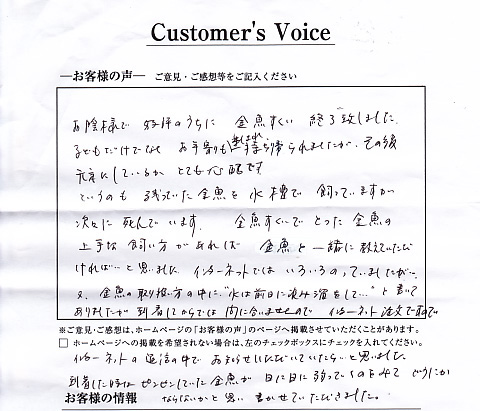 Customer's Voice
―お客様の声― ご意見・ご感想等をご記入ください
お陰様で 好評のうちに 金魚すくい 終了致しました。
子どもだけでなく お年寄りも 喜ばれ 持ち帰られましたが、その後
元気にしているか とても心配です
というのも 残っていた金魚を 水槽で 飼っていますが
次々に 死んでいます。 金魚すくいで とった 金魚の
上手な 飼い方があれば 金魚と一緒に 教えていただ
ければ…と思いました インターネットでは いろいろのっていましたが…
又、金魚の取り扱い方の中に、"水は前日に汲み溜をして…"と書いて
ありましたが 到着してからでは 間に合いませんので インターネット注文
※ご意見・ご感想は、ホームページの「お客様の声」のページへ掲載させていただくことがあります。
□ ホームページへの掲載を希望されない場合は、左のチェックボックスにチェックを入れてください。
インターネットの 返信の中で お知らせしていただいていたら…と思いました。
到着した時は ピンピンしていた金魚が 日に日に 弱っていくのをみて どうにか
お客様の情報 ならないかと思い 書かせていただきました。